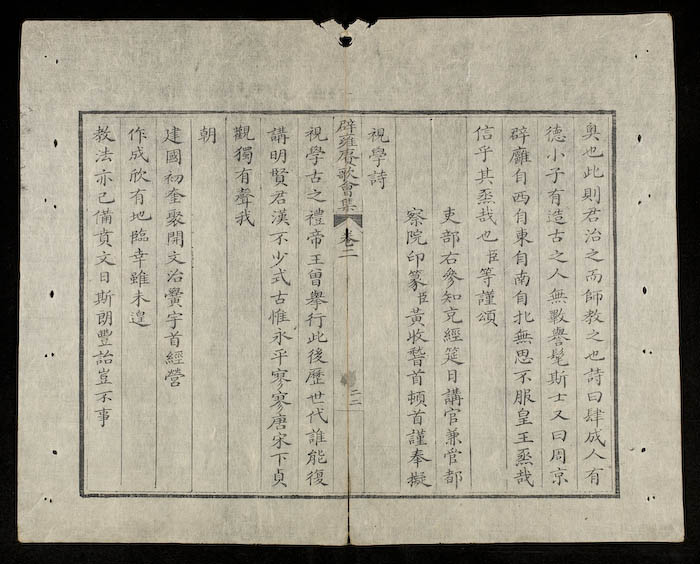 奥也此則君治之而師教之也詩曰肆成人有
德小子有造古之人無斁譽髦斯士又曰周京
辟廱自西自東自南自北無思不服皇王烝哉
信乎其烝哉也臣等謹頌
吏部右參知充經筵日講官兼管都
察院印篆臣黃收瞽首頓首謹奉擬
視學詩
辟雍賡歌會集
卷二
二二
視學古之禮帝王曾舉行此後歷世代誰能復
講明賢君漢不少式古惟永平寥寥唐宋下貞
觀獨有聲我
朝
建國初奎聚開文治黌宇首經營
作成欣有地臨幸雖未遑
教法亦已備賁文日斯朗豐詒豈不事